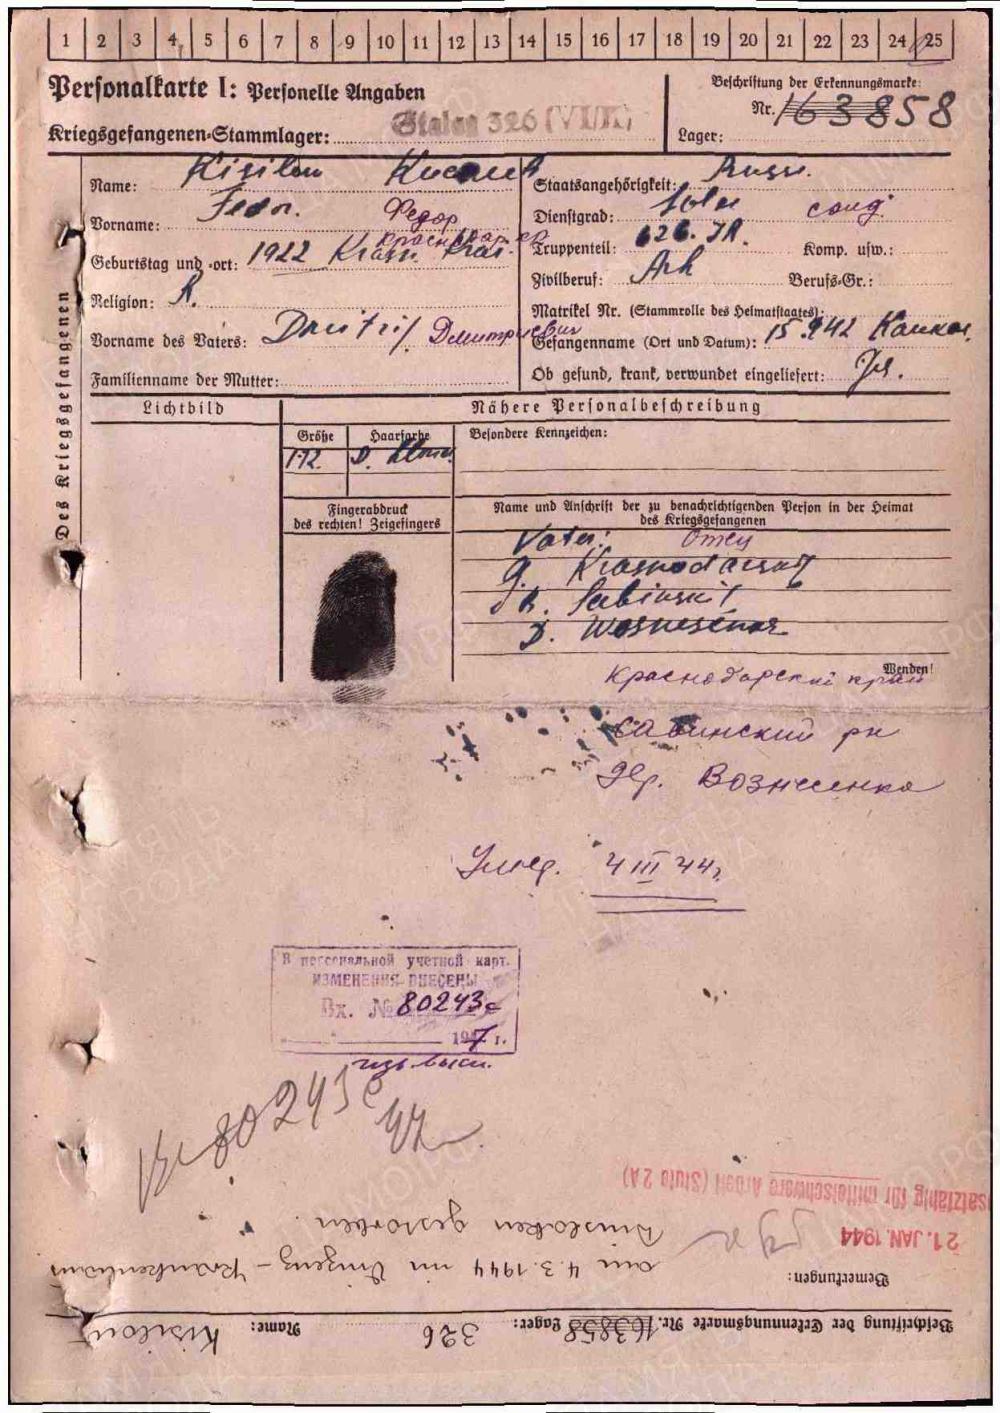 1 2 3 4 5 6 7 8 9 10 11 12 13 14 15 16 17 18 19 20 21 22 23 24 25
Personalkarte I: Personelle Angaben
Kriegsgefangenen-Stammlager: Stalag 326 (VI/K)
Beschriftung der Erkennungsmarke:
Nr. 163858
Lager:
Des Kriegsgefangenen
Name: Kisilow
Vorname: Fedor. Федор
Geburtstag und -ort: 1922 Krasn. Kras.
Religion: R.
Vorname des Vaters: Dmitrij Дмитриевич
Familienname der Mutter:
Staatsangehörigkeit: Russ.
Dienstgrad: Sold солд
Truppenteil: 626. JR. Komp. usw.:
Zivilberuf: Arb Berufs-Gr.:
Matrikel Nr. (Stammrolle des Heimatstaates):
Gefangenname (Ort und Datum): 15.9.42 Kaukas.
Ob gesund, krank, verwundet eingeliefert:
Lichtbild
Nähere Personalbeschreibung
Größe Haarfarbe Besondere Kennzeichen:
1.72. D.
Fingerabdruck
des rechten! Zeigefingers
Name und Anschrift der zu benachrichtigenden Person in der Heimat
des Kriegsgefangenen
Vater: Отец
G. Krasnodarskij
R. Sabinskij
D. Wosnesenka
Wenden!
Краснодарский край
Сабинский рн
дер. Вознесенка
Умер. 4 III 44г.
В персональной учетной карт.
ИЗМЕНЕНИЯ ВНЕСЕНЫ
Вх. № 80243с
1947 г.
Вх 80243с
47
Einsatzfähig für mittelschwere Arbeit (Stufe 2A)
21. JAN. 1944
Bemerkungen:
am 4.3.1944 im Krankenhaus
Dinslaken gestorben.
Beschriftung der Erkennungsmarke Nr. 163858 Lager: 326 Name: Kisilow